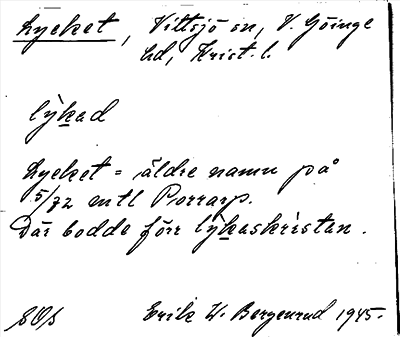 Lycket, Vittsjö sn, V. Göinge
hd, Krist. l.
lỳkad
Lycket = äldre namn på
5/72 mtl Porrarp.
Där bodde förr lỳkaskristan.
SOS Erik W. Bergenrud 1945.